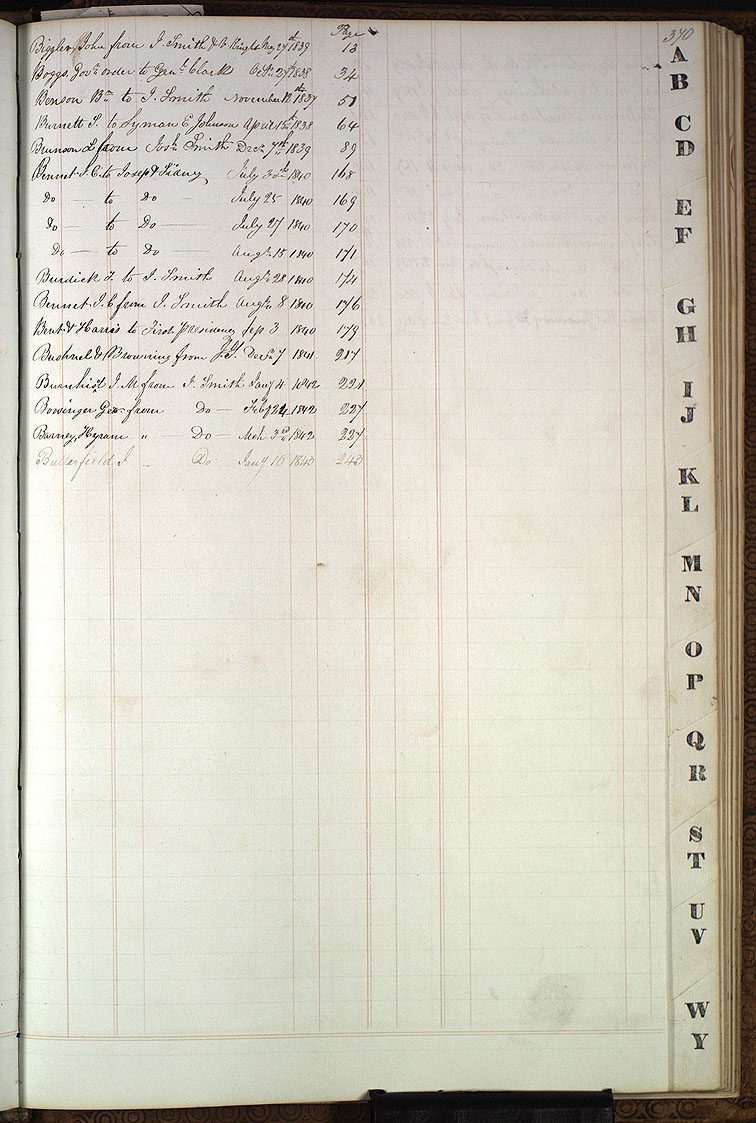 Page
370
Biggler, John from J. Smith & V Knight May 27th 1839 13
Boggs, Govr. order to Genl. Clark Octr. 27th 1838 34
Benson Bn. to J. Smith November 12th 1837 51
Burnett P. to Lyman E Johnson April 15th 1838 64
Brunson L from Josh. Smith Decr. 7th 1839 89
Bennet J. C. to Joseph & Sidney July 30th 1840 168
Do — to Do — July 25 1840 169
Do — to Do — July 27 1840 170
Do — to Do — Augt. 15 1840 171
Burdick T. to J. Smith Augt. 28 1840 174
Bennet J. C from J. Smith Augt. 8 1840 176
Bent & Harris to First presidency Sep 3 1840 179
Bushnel & Browning from J. S. Decr. 7 1841 217
Burnhisel J. M from J. Smith Jany 4 1842 221
Bowinger Geo. from Do — Feby 24 1842 227
Barney, Hyram " Do — Mch 3rd 1842 227
Butterfield J Do Jany 16 1843 243
A
B
C
D
E
F
G
H
I
J
K
L
M
N
O
P
Q
R
S
T
U
V
W
Y